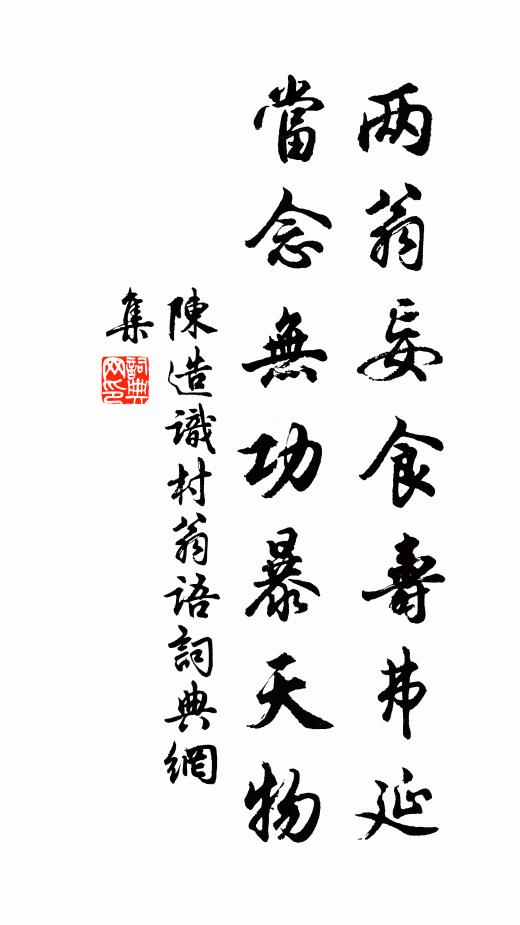 两翁妄食壽弗延
當念無功暴天物
陳造識村翁語詞典網
集
詞典
网印